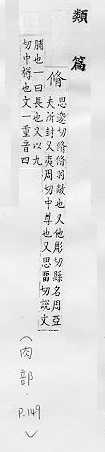 類篇
脩
思邀切脩脩羽敝也又他彫切縣名周亞
夫所封又夷周切中尊也又思畱切說文
脯也一曰長也又以九
切中樽也文一重音四
(肉部 P.149)